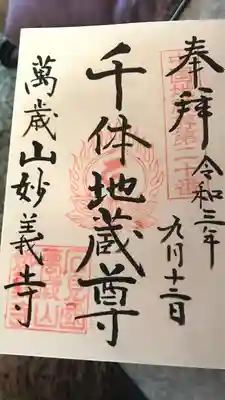 奉拝
令和三年
九月十二日
千体地蔵尊
萬歳山妙義寺